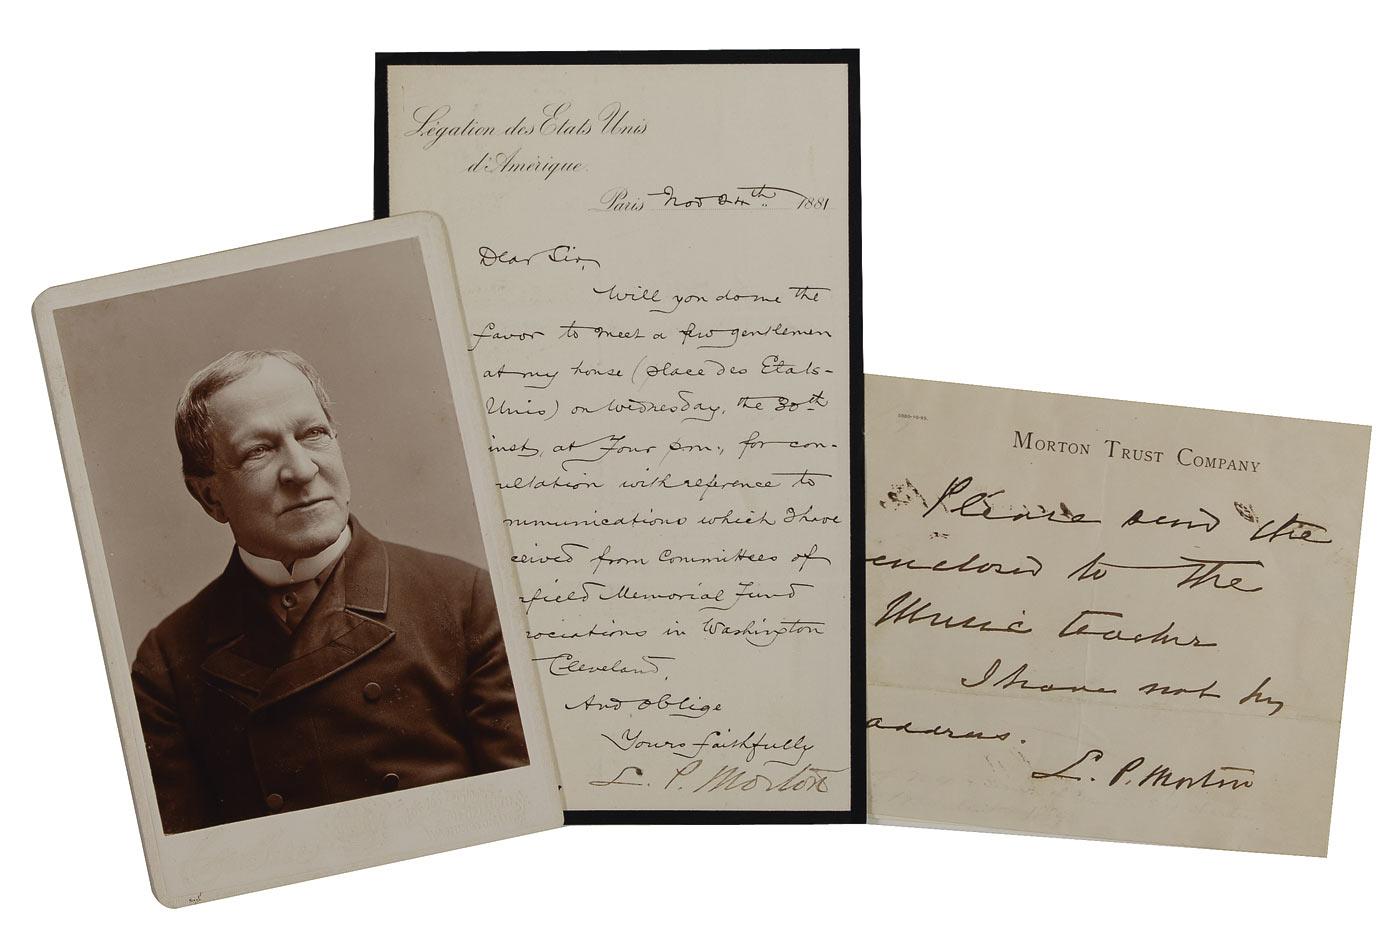 Légation des Etats Unis
d'Amérique.
Paris Nov 24th 1881
Dear Sir,
Will you do me the
favor to meet a few gentlemen
at my house (place des Etats-
Unis) on Wednesday, the 30th
inst, at Four pm., for con-
ultation with reference to
mmunications which I have
ceived from Committees of
rfield Memorial Fund
ociations in Washington
Cleveland,
And oblige
Yours faithfully
L. P. Morton
MORTON TRUST COMPANY
Please send the
enclosed to the
Music teacher
I have not his
address.
L. P. Morton